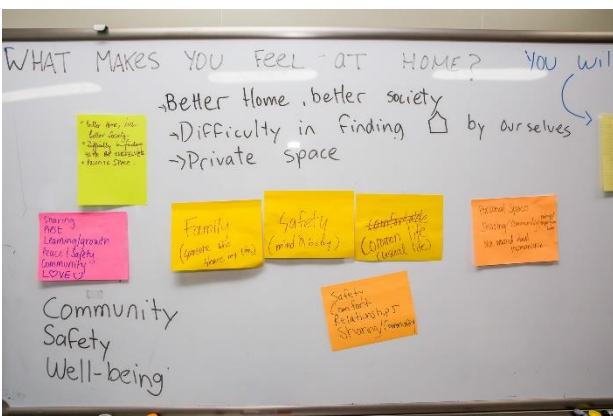 WHAT MAKES YOU FEEL AT HOME? YOU WIL
→Better Home, better society
→Difficulty in finding by ourselves
→Private space
Better Home,
better society.
Difficulty in finding
PRIVATE SPACE.
Sharing
Rest
Learning/growth
Peace & Safety
Community
LOVE
Family
(someone who
share my life)
Safety
(mind & body)
comfortable
Common life
(usual life)
Personal Space
Sharing/Community
Safety
Comfort
Relationships
Sharing/Community
Community
Safety
Well-being